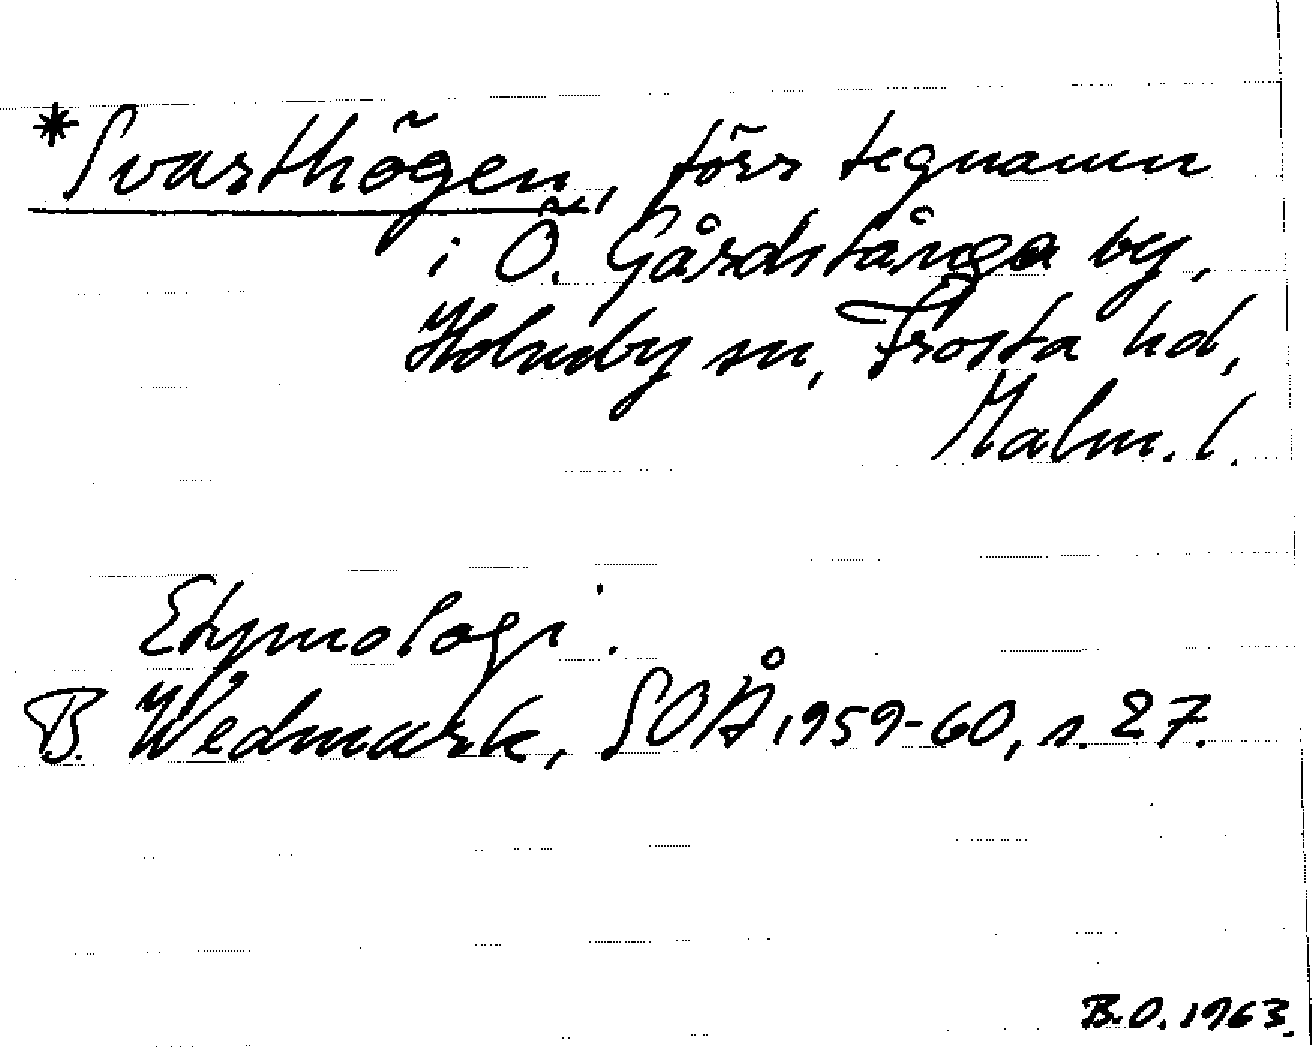 *Svarthögen, förr tegnamn
i Ö. Gårdstånga by,
Holmby sn, Frosta hd,
Malm. l.
Etymologi:
B. Wedmark, SOÅ 1959-60, s. 27.
B.O. 1963.